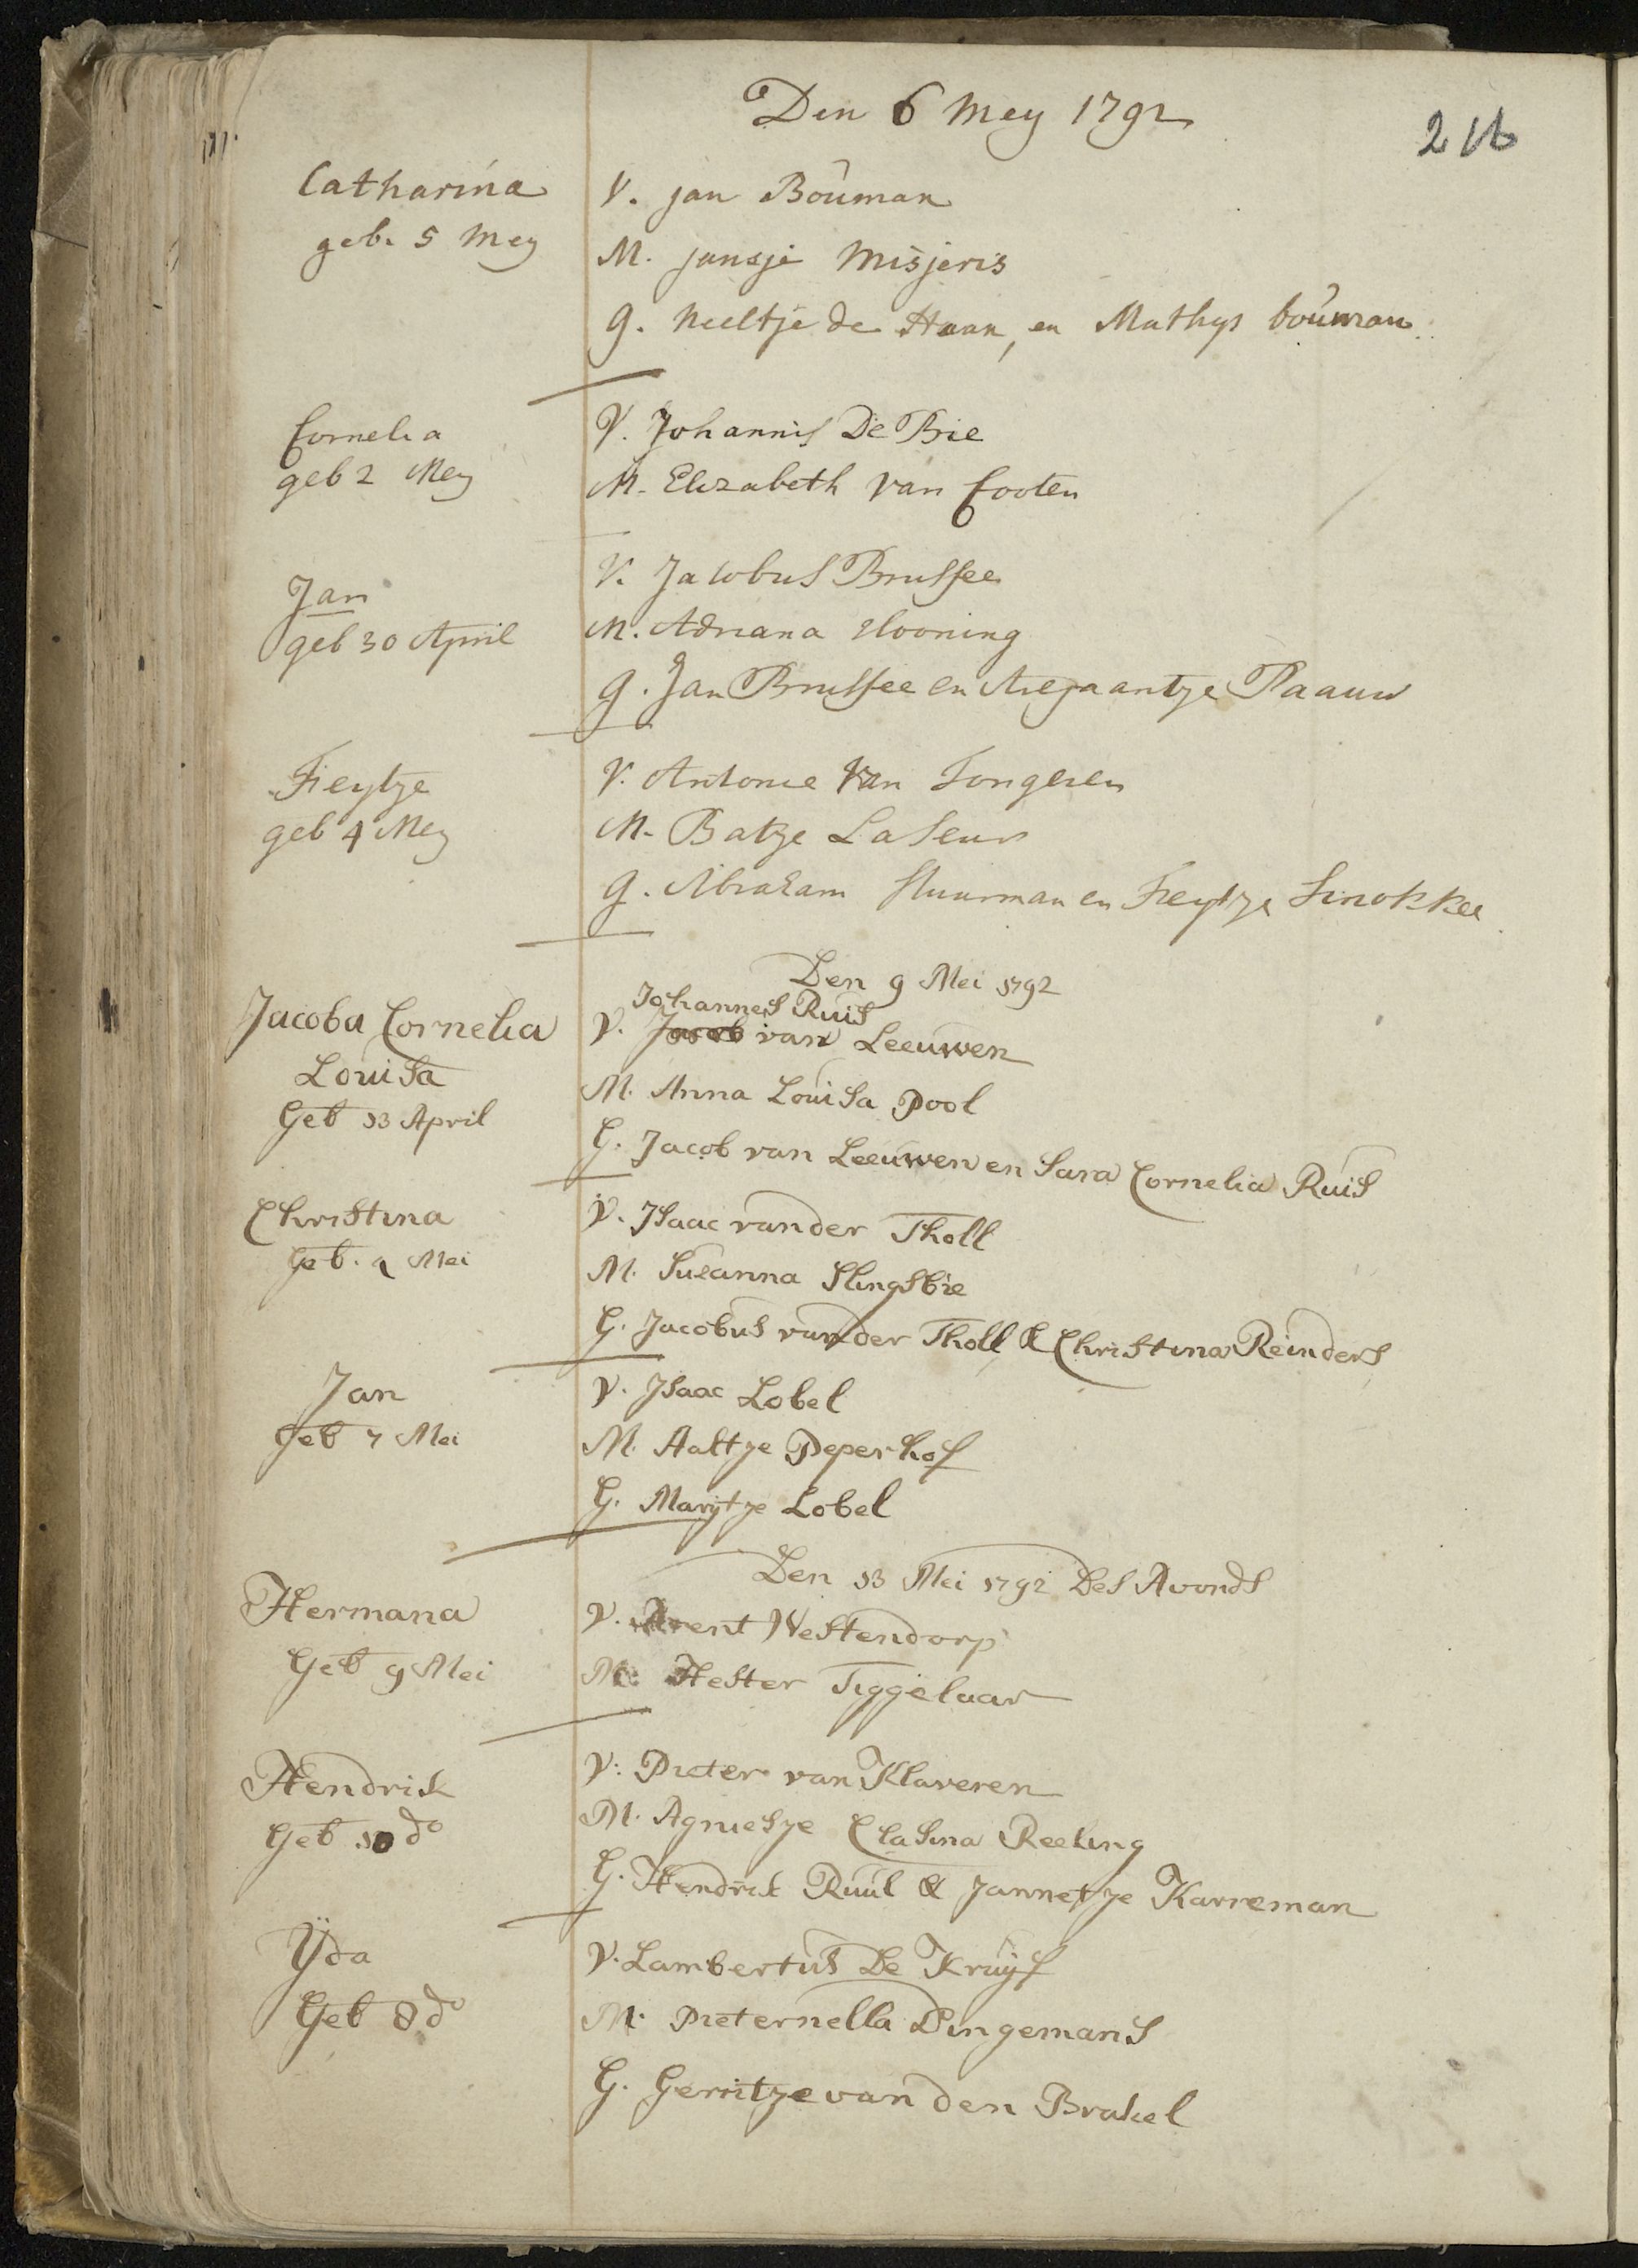 Den 6 Mey 1792
216
Catharina
geb. 5 Mey
V. Jan Bouman
M. Jansje Misjeris
G. Neeltje de Haan, en Mathys bouman
Cornelia
geb 2 Mey
V. Johannis De Brie
M. Elizabeth Van Cooten
Jan
geb 30 April
V. Jacobus Brussee
M. Adriana Hooning
G. Jan Brussee en Ariejaantje Paauw
Fieytje
geb 4 Mey
V. Antonie Van Tongeren
M. Batje LaSeur
G. Abraham Stuurman en Fieytje Sinokkee
Den 9 Mei 1792
Jacoba Cornelia
Louisa
Geb 13 April
Johannes Ruis
V. Jacob van Leeuwen
M. Anna Louisa Pool
G. Jacob van Leeuwen en Sara Cornelia Ruis
Christina
Geb. Mei
V. Isaac vander Tholl
M. Susanna Slingsbie
G. Jacobus vander Tholl & Christina Reinders
Jan
Geb 7 Mei
V. Isaac Lobel
M. Aaltje Peperhof
G. Marijtje Lobel
Den 13 Mei 1792 Des Avonds
Hermana
Geb 9 Mei
V. Arent Westendorp
M. Hester Tiggelaar
Hendrik
Geb 10 do
V: Pieter van Klaveren
M. Agniesje Clasina Reeling
G. Hendrik Ruul & Jannetje Karreman
Ÿda
Geb 8 do
V. Lambertus De Kruijf
M. Pieternella Dingemans
G. Gerritje van den Brakel